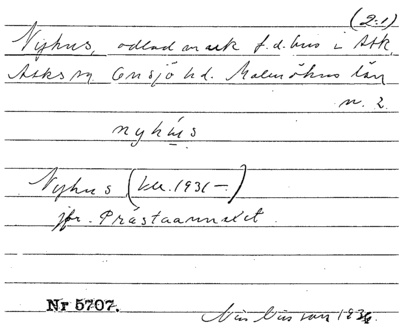 (2:1)
Nyhus, odlad mark f.d. hus i Ask,
Asks sn Onsjö hd. Malmöhus län
n. 2
nyhus
Nyhus (kk. 1931-)
jfr. Prästaannexet.
Nr 5707. Nils Nilsson 193